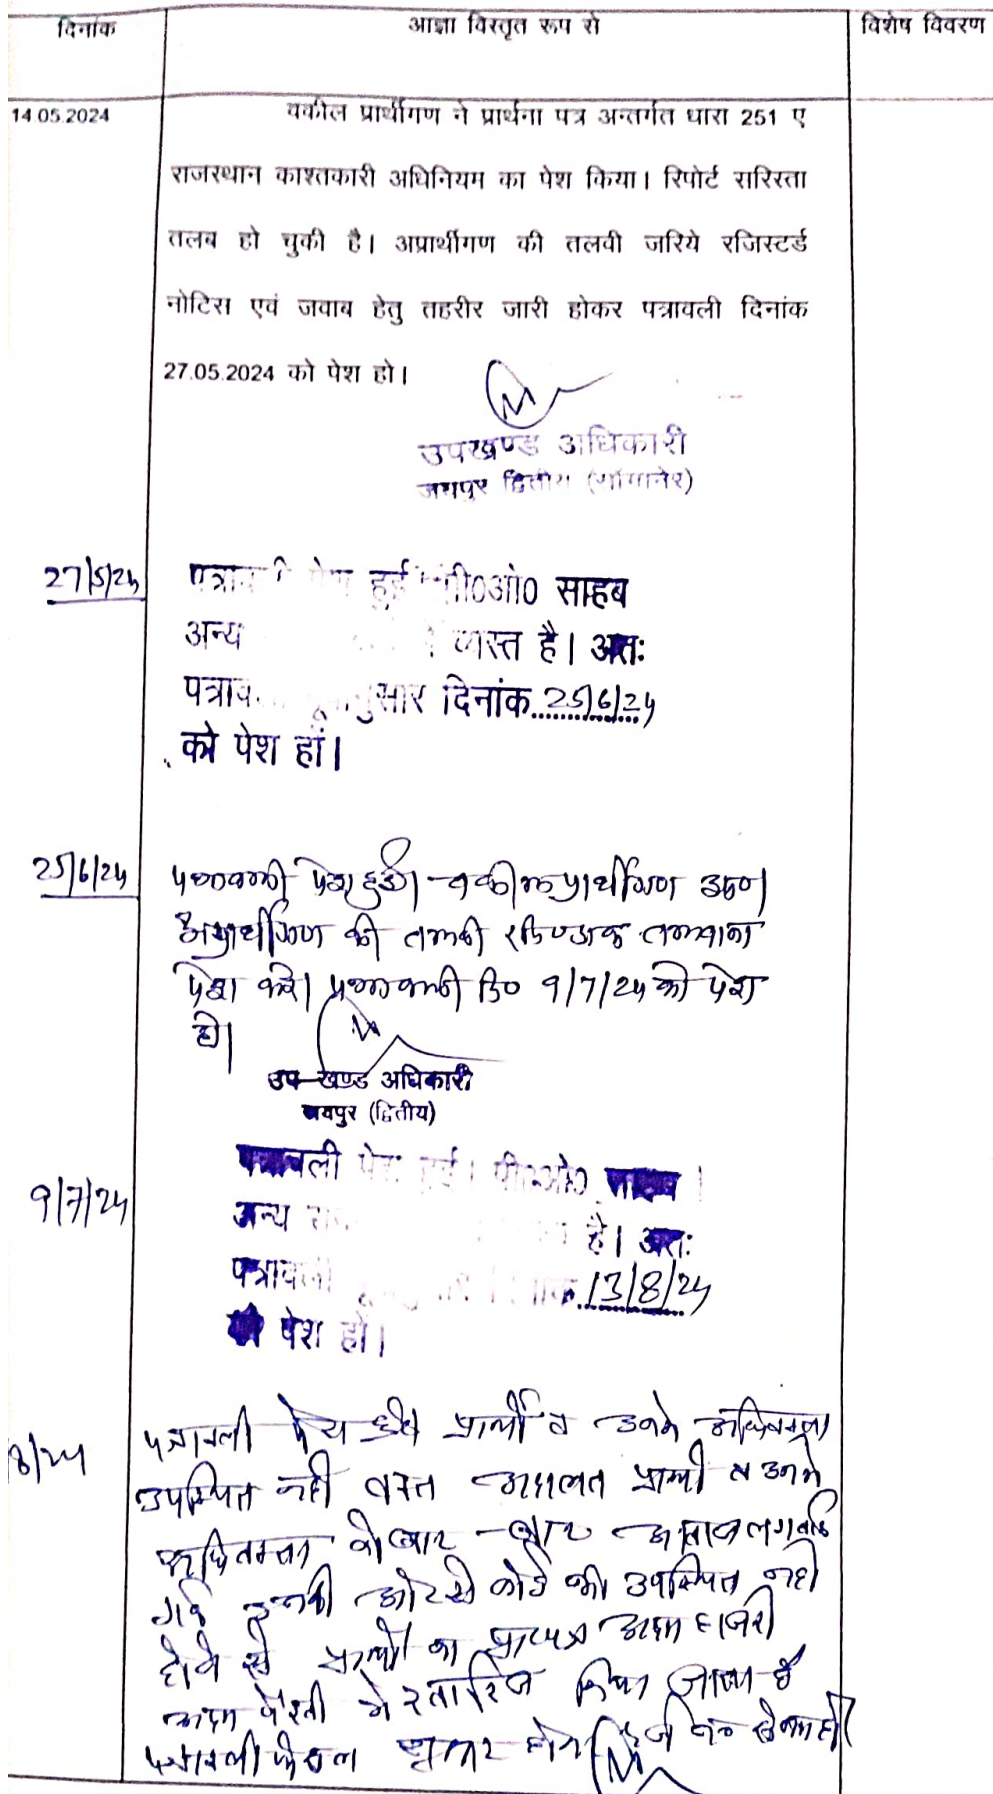 दिनांक
आज्ञा विस्तृत रूप से
विशेष विवरण
14.05.2024
वकील प्रार्थीगण ने प्रार्थना पत्र अन्तर्गत धारा 251 ए
राजस्थान काश्तकारी अधिनियम का पेश किया। रिपोर्ट सरिस्ता
तलब हो चुकी है। अप्रार्थीगण की तलवी जरिये रजिस्टर्ड
नोटिस एवं जवाब हेतु तहरीर जारी होकर पत्रावली दिनांक
27.05.2024 को पेश हो।
उपखण्ड अधिकारी
जयपुर द्वितीय (सॉंगानेर)
27/5/24
हुई साहब
अन्य व्यस्त है। अतः
दिनांक 25/6/24
को पेश हों।
25/6/24
पत्रावली पेश हुई। वकील प्रार्थीगण उप०।
अप्रार्थीगण की तलबी
पेश करे। पत्रावली दि० 9/7/24 को पेश
हो।
उप-खण्ड अधिकारी
जयपुर (द्वितीय)
9/7/24
पत्रावली पेश हुई। पी०ओ० साहब
अन्य है। अतः
पत्रावली 13/8/24
को पेश हों।
8/24
पत्रावली पेश हुई प्रार्थी व उनके अधिवक्ता
उपस्थित नहीं वक्त अदालत प्रार्थी व उनके
अधिवक्ता को बार बार आवाज लगवाई
गई उनकी ओर से कोई भी उपस्थित नहीं
होने से प्रार्थी का अदम हाजरी
अदम पैरवी मे खारिज किया जाता है
पत्रावली फैसल शुमार होकर